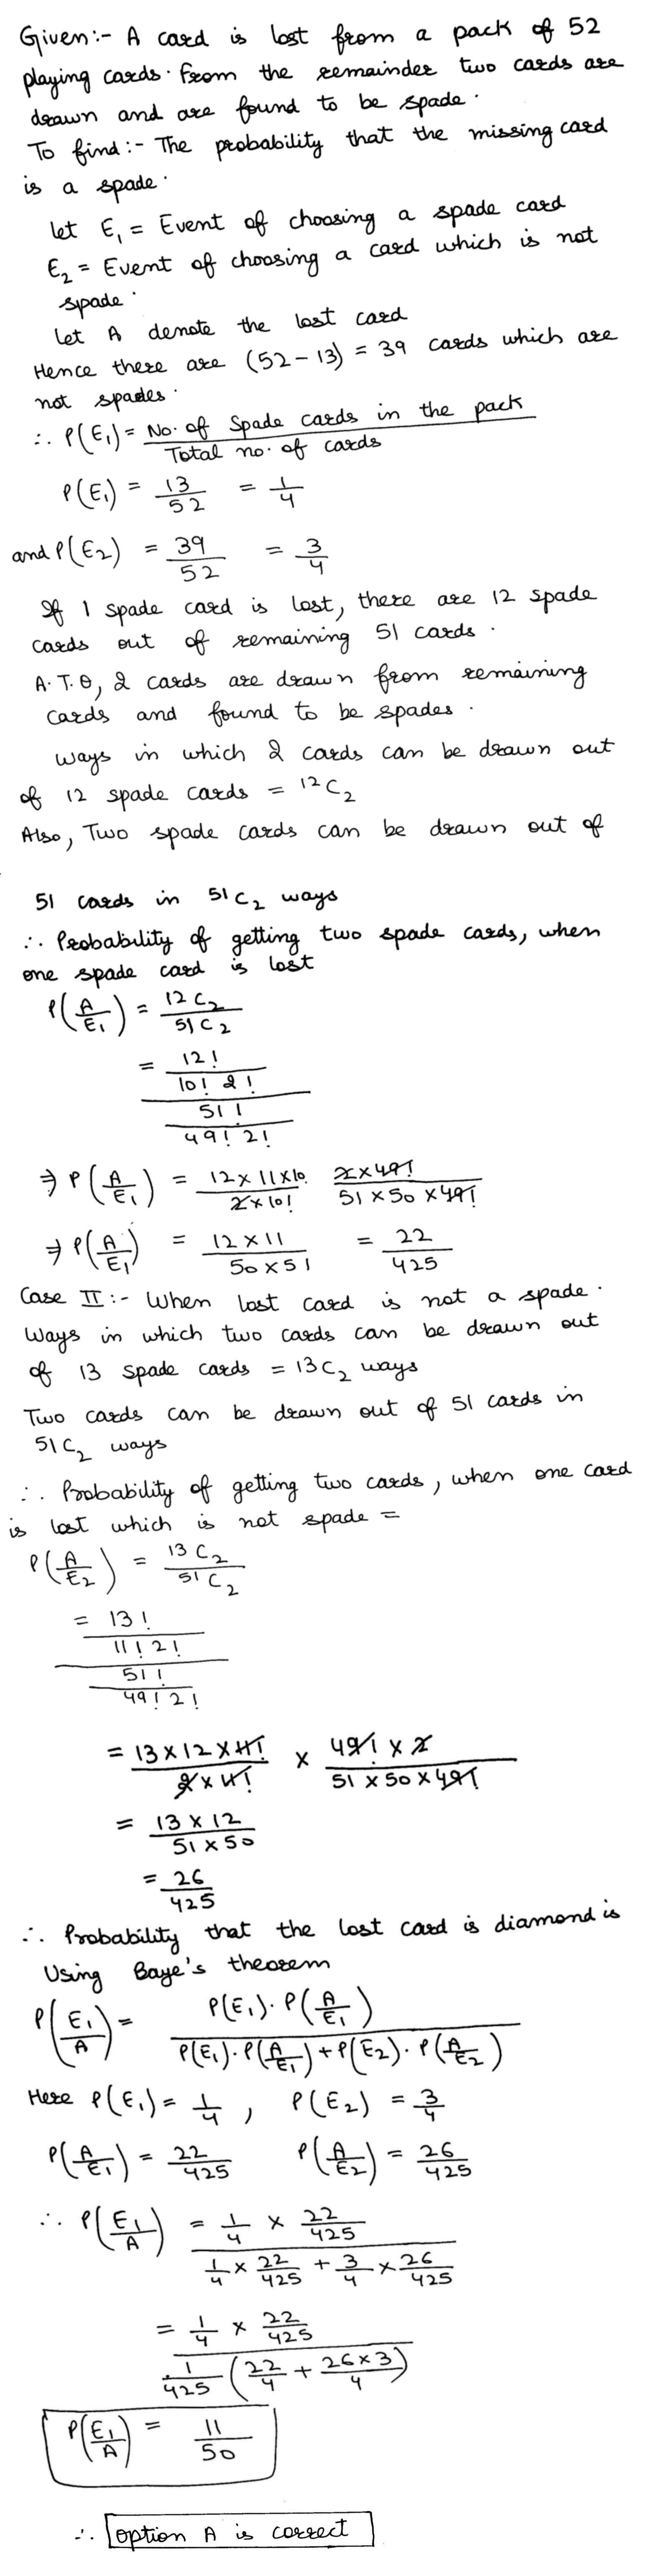 Given:- A card is lost from a pack of 52
playing cards. From the remainder two cards are
drawn and are found to be spade.
To find:- The probability that the missing card
is a spade.
let E₁ = Event of choosing a spade card
E₂ = Event of choosing a card which is not
spade.
Let A denote the lost card
Hence there are (52-13) = 39 cards which are
not spades.
∴ P(E₁) = No. of Spade cards in the pack / Total no. of cards
P(E₁) = 13/52 = 1/4
and P(E₂) = 39/52 = 3/4
If 1 spade card is lost, there are 12 spade
cards out of remaining 51 cards.
A.T.Q, 2 cards are drawn from remaining
cards and found to be spades.
Ways in which 2 cards can be drawn out
of 12 spade cards = ¹²C₂
Also, Two spade cards can be drawn out of
51 cards in 51C₂ ways
∴ Probability of getting two spade cards, when
one spade card is lost
P(A/E₁) = 12C₂/51C₂
= (12!/10! 2!)/(51!/49! 2!)
⇒ P(A/E₁) = 12×11×10/2×10! 2×49!/51×50×49!
⇒ P(A/E₁) = 12×11/50×51 = 22/425
Case II:- When lost card is not a spade.
Ways in which two cards can be drawn out
of 13 spade cards = 13C₂ ways
Two cards can be drawn out of 51 cards in
51C₂ ways
∴ Probability of getting two cards, when one card
is lost which is not spade =
P(A/E₂) = ¹³C₂/⁵¹C₂
= (13!/11! 2!)/(51!/49! 2!)
= 13×12×11!/2×11! × 49!×2/51×50×49!
= 13×12/51×50
= 26/425
∴ Probability that the lost card is diamond is
Using Baye's theorem
P(E₁/A) = P(E₁).P(A/E₁) / P(E₁).P(A/E₁)+P(E₂).P(A/E₂)
Here P(E₁) = 1/4, P(E₂) = 3/4
P(A/E₁) = 22/425 P(A/E₂) = 26/425
∴ P(E₁/A) = (1/4 × 22/425)/(1/4 × 22/425 + 3/4 × 26/425)
= (1/4 × 22/425)/(1/425 (22/4 + 26×3/4))
P(E₁/A) = 11/50
∴ option A is correct